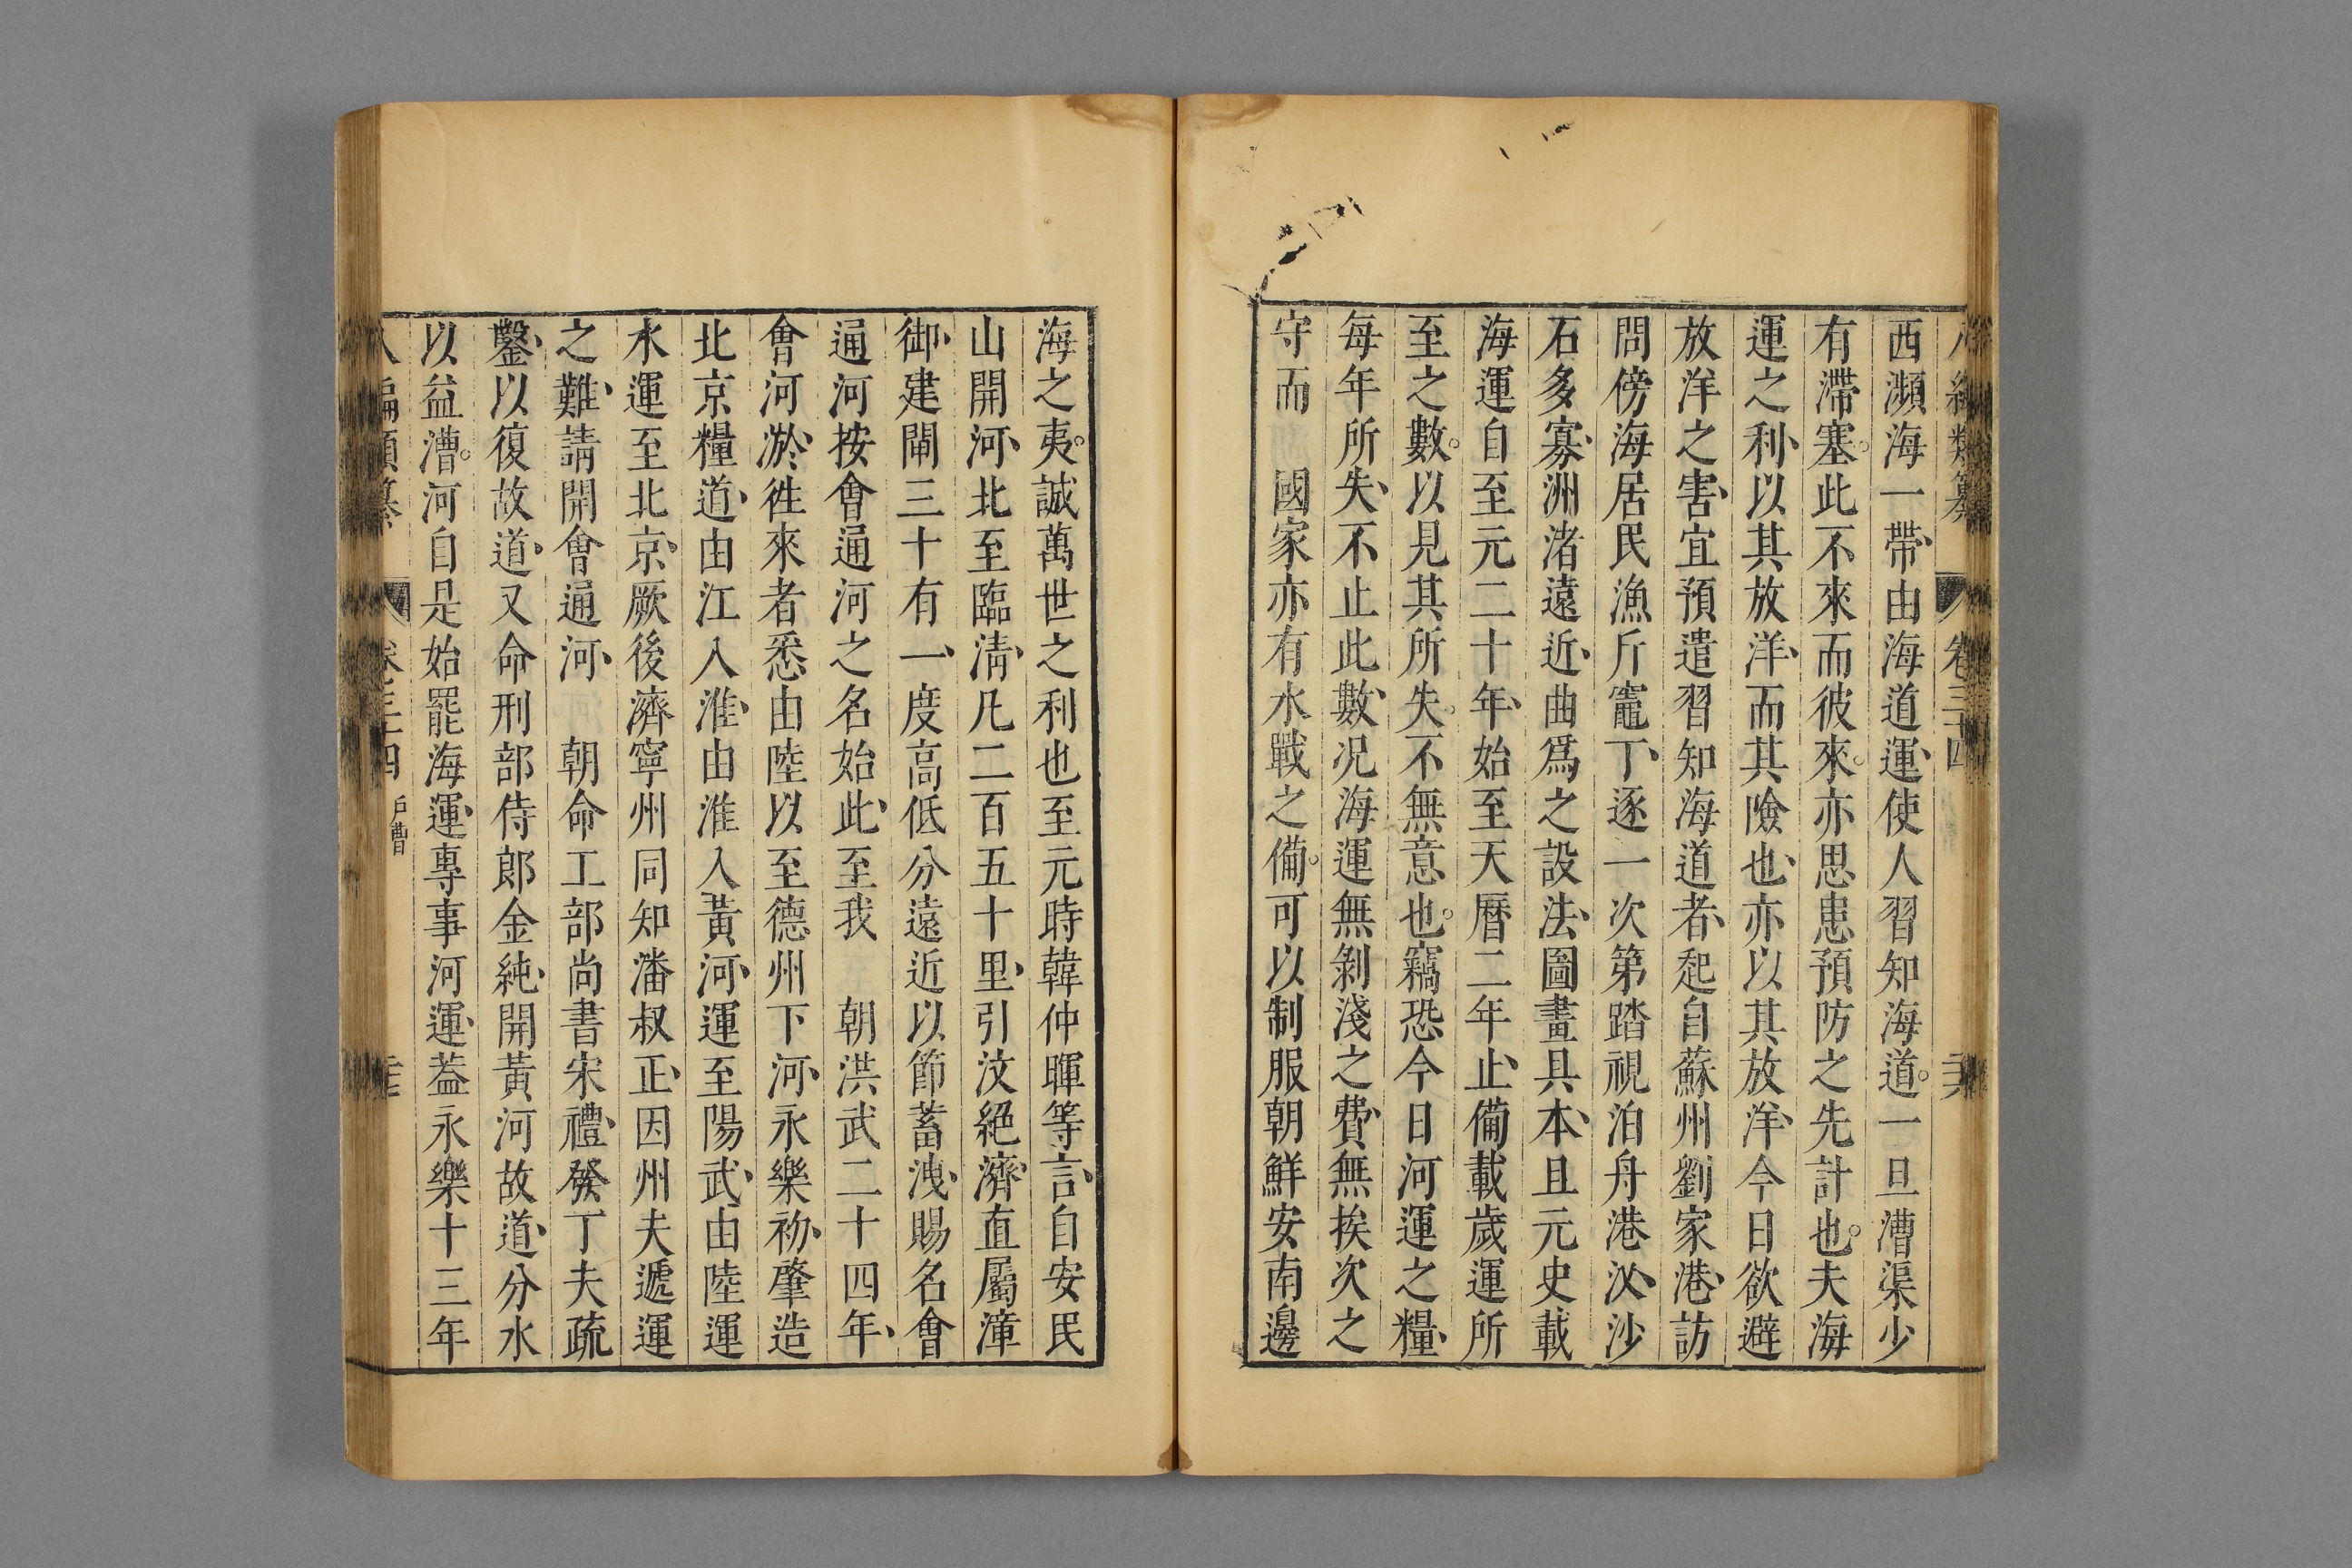 八編類纂 卷三十四
西瀕海一帶、由海道運、使人習知海道。一旦漕渠少
有滯塞。此不來而彼來。亦思患預防之先計也。夫海
運之利、以其放洋、而其險也、亦以其放洋、今日欲避
放洋之害、宜預遣習知海道者、起自蘇州劉家港、訪
問傍海居民漁斤竈丁、逐一次第踏視泊舟港汊、沙
石多寡、洲渚遠近、曲爲之設法、圖畫具本、且元史載
海運自至元二十年、始至天曆二年止、備載歲運所
至之數。以見其所失。不無意也。竊恐今日河運之糧、
每年所失、不止此數、况海運無剝淺之費、無挨次之
守而 國家亦有水戰之備。可以制服朝鮮安南邊
海之夷。誠萬世之利也至元時韓仲暉等言、自安民
山開河、北至臨清、凡二百五十里、引汶絕濟、直屬漳
御、建閘三十有一、度高低分遠近以節蓄洩、賜名會
通河按會通河之名始此、至我 朝洪武二十四年、
會河淤、徃來者悉由陸以至德州下河、永樂初、肇造
北京糧道、由江入淮、由淮入黃河、運至陽武、由陸運
水運至北京、厥後濟寧州同知潘叔正、因州夫遞運
之難、請開會通河、 朝命工部尚書宋禮、發丁夫疏
鑿、以復故道、又命刑部侍郎金純、開黃河故道、分水
以益漕。河自是始罷海運、專事河運、葢永樂十三年
八編類纂 卷三十四 戶曹